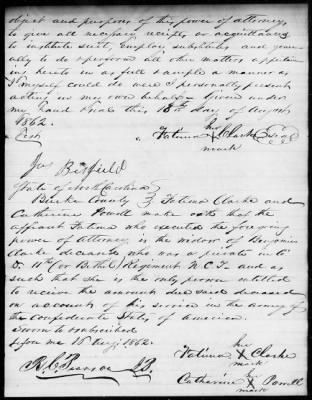 object and purposes of this power of attorney,
to give all necessary receipts or acquittances
to institute suit, employ substitutes and gener-
ally to do & perform all other matters appertain
ing hereto in as full & ample a manner as
I myself could do were I personally present
acting in my own behalf - Given under
my hand & seal this 18th day of August
1862
Test
her
Fatima X Clarke Seal
mark
Jas
State of North Carolina }
Burke County } Fatima Clarke and
Catharine Powell make oath that the
affiant Fatima who executed the foregoing
power of Attorney, is the widow of Benjamin
Clarke deceased who was a private in Co
D. 11th (or Bethel) Regiment N.C.T. and as
such that she is the only person entitled
to receive the amount due said deceased
on account of his service in the army of
the Confederate States of America.
Sworn to & subscribed
before me 18 Aug; 1862.
her
Fatima X Clarke
mark
R. C. Pearson J.P.
her
Catharine X Powell
mark